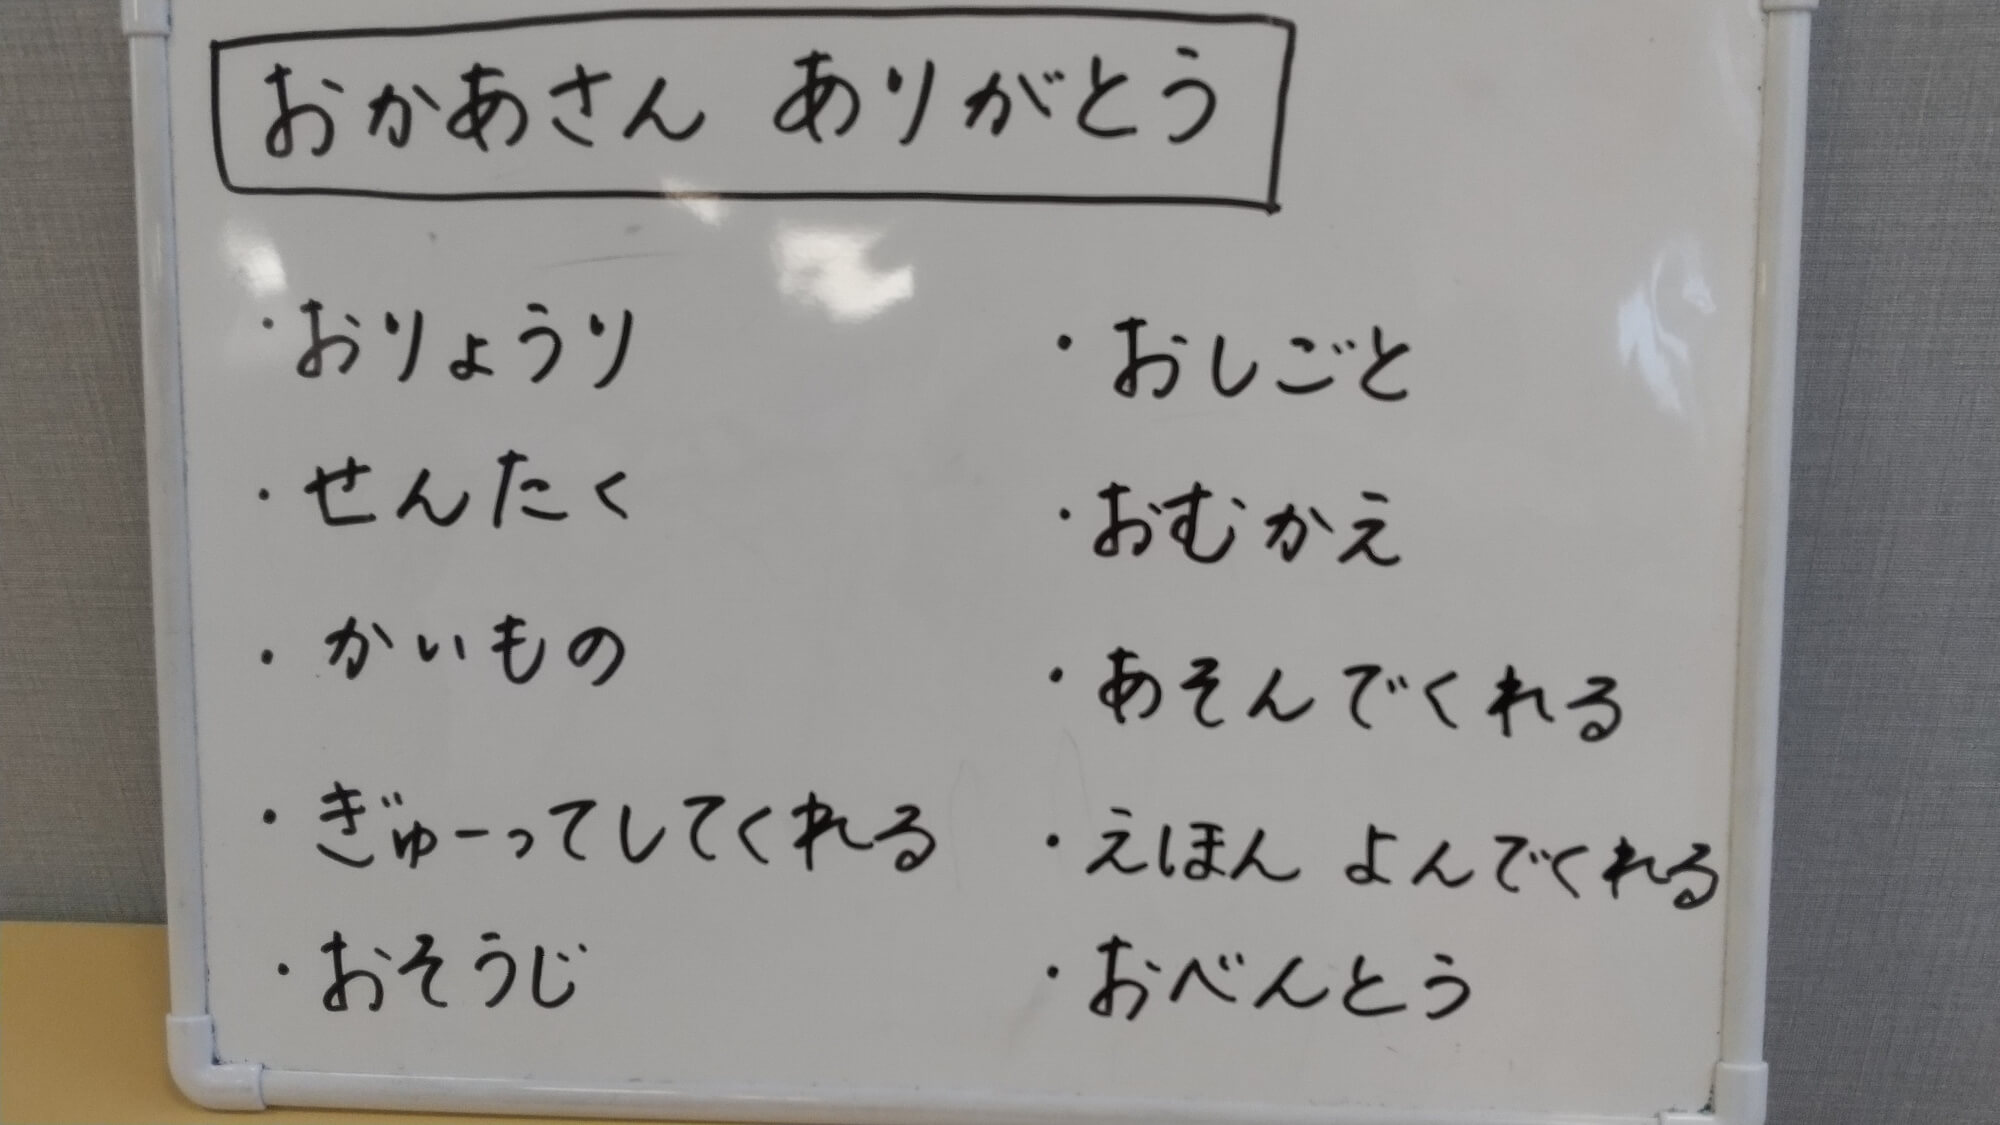 おかあさん ありがとう
・おりょうり
・せんたく
・かいもの
・ぎゅーってしてくれる
・おそうじ
・おしごと
・おむかえ
・あそんでくれる
・えほん よんでくれる
・おべんとう